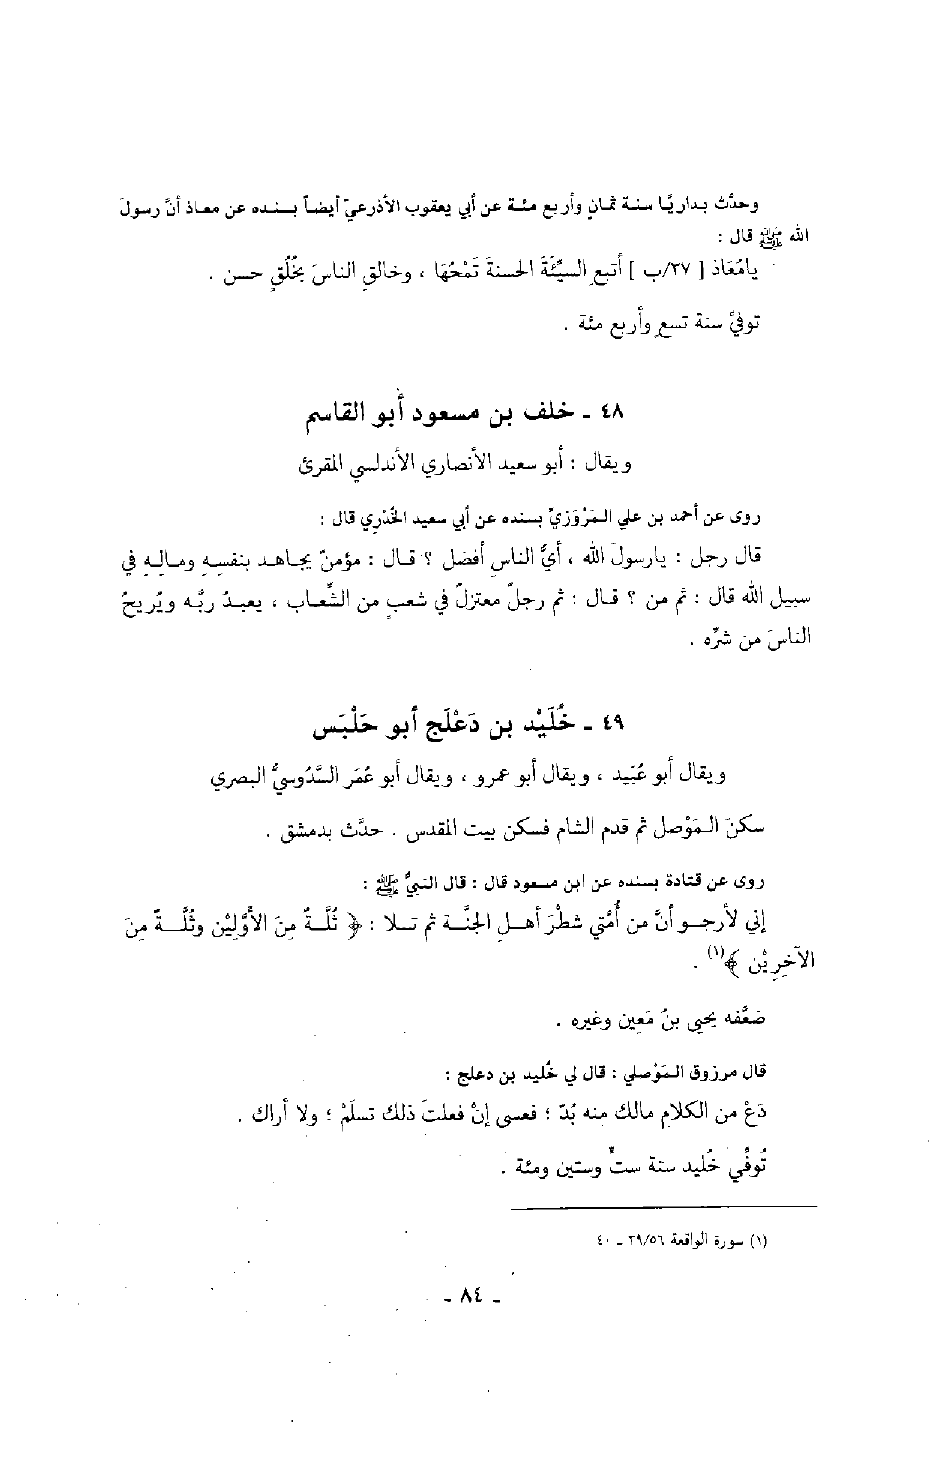 وحدَّث بداريَّا سنة ثمانٍ وأربع مئة عن أبي يعقوب الأذرعيّ أيضاً بسنده عن معاذ أنَّ رسولَ
الله ﷺ قال :
يامُعَاذ [ ٢٧/ب ] أتبع السيِّئَةَ الحسنةَ تَمْحُهَا ، وخالقِ الناسَ بخُلُقٍ حسن .
توفيَّ سنة تسع وأربع مئة .
٤٨ ـ خلف بن مسعود أبو القاسم
ويقال : أبو سعيد الأنصاري الأندلسي المقرئ
روى عن أحمد بن علي المَرْوَزيّ بسنده عن أبي سعيد الخُدْرِي قال :
قال رجل : يارسولَ الله ، أيُّ الناسِ أفضل ؟ قال : مؤمنٌ يجاهد بنفسِهِ ومالِهِ في
سبيل الله قال : ثم من ؟ قال : ثم رجلٌ معتزلٌ في شعبٍ من الشِّعاب ، يعبدُ ربَّه ويُريحُ
الناسَ من شرِّه .
٤٩ ـ خُلَيْد بن دَعْلَج أبو حَلْبَس
ويقال أبو عُبَيد ، ويقال أبو عمرو ، ويقال أبو عُمَر السَّدُوسيُّ البصري
سكنَ المَوْصل ثم قدم الشام فسكن بيت المقدس . حدَّث بدمشق .
روى عن قتادة بسنده عن ابن مسعود قال : قال النبيُّ ﷺ :
إني لأرجو أنَّ من أُمَّتي شطْرَ أهلِ الجنَّة ثم تلا : ﴿ ثُلَّةٌ مِنَ الأوَّلِيْن وثُلَّةٌ مِنَ
الآخِرِيْن ﴾(١) .
ضَعَّفه يحيى بنُ مَعين وغيره .
قال مرزوق المَوْصلي : قال لي خُليد بن دعلج :
دَعْ من الكلام مالك منه بُدّ ؛ فعسى إنْ فعلتَ ذلك تسلَمْ ؛ ولا أراك .
تُوفِّي خُليد سنة ستٍّ وستين ومئة .
(١) سورة الواقعة ٣٩/٥٦ ـ ٤٠
ـ ٨٤ ـ